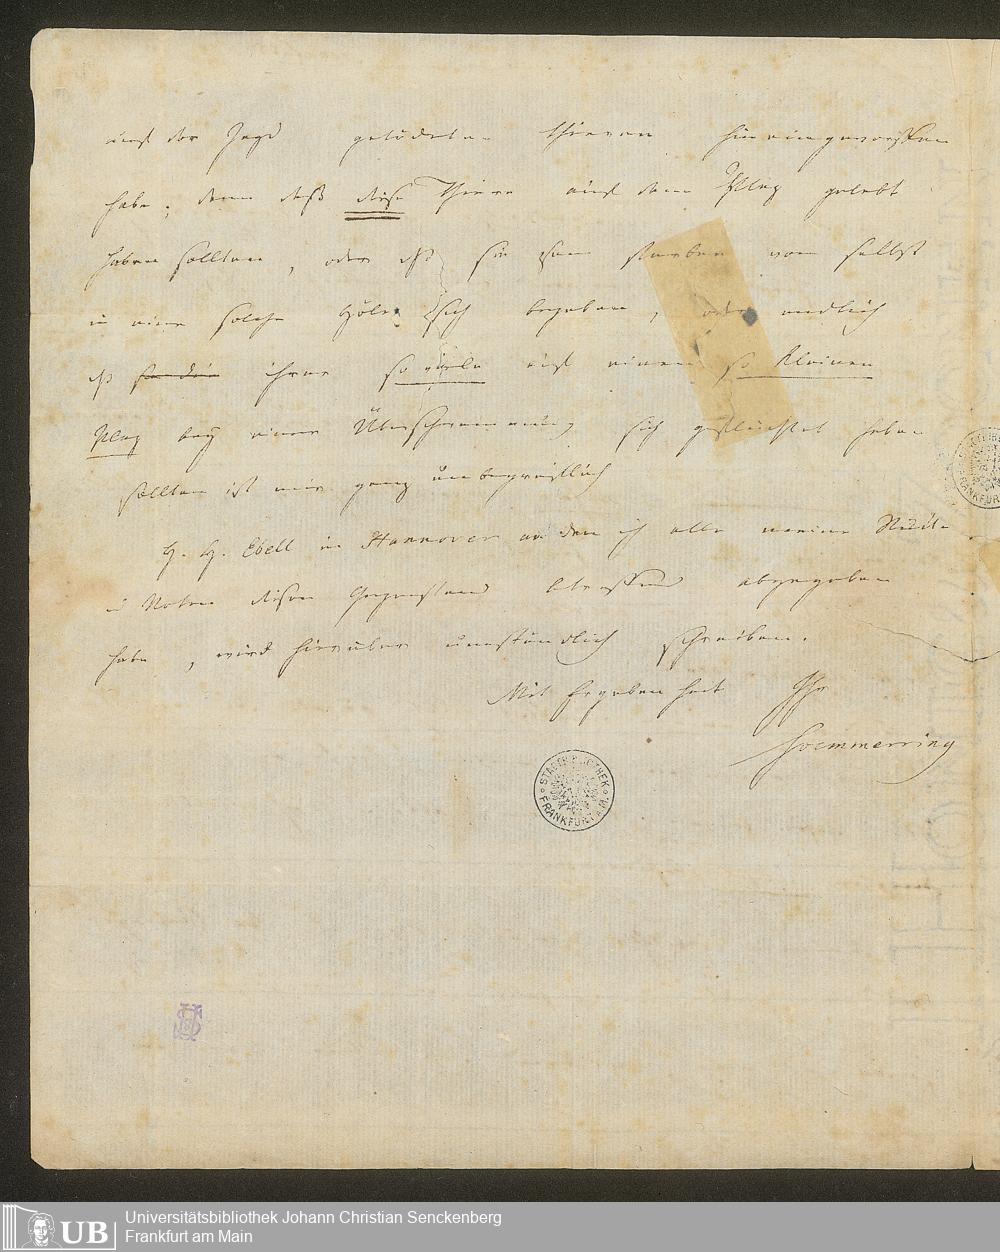 auf der Jagd getödeten Thieren hineingeworffen
habe; denn daß diese Thiere auf dem Plaz gelebt
haben sollten, oder daß sie zum sterben von selbst
in eine solche Höle sich begeben, oder endlich
daß ihrer so viele auf einen so kleinen
Plaz bey einer Überschwemmung sich geflüchtet haben
sollten ist mir ganz unbegreiflich
H. H. Ebell in Hannover an den ich alle meine
u Noten diesen Gegenstand betreffend abgegeben
habe, wird hierüber umständlich schreiben.
Mit Ergebenheit Ihr
Soemmerring
STADTBIBLIOTHEK
FRANKFURT A. M.
UB
Universitätsbibliothek Johann Christian Senckenberg
Frankfurt am Main